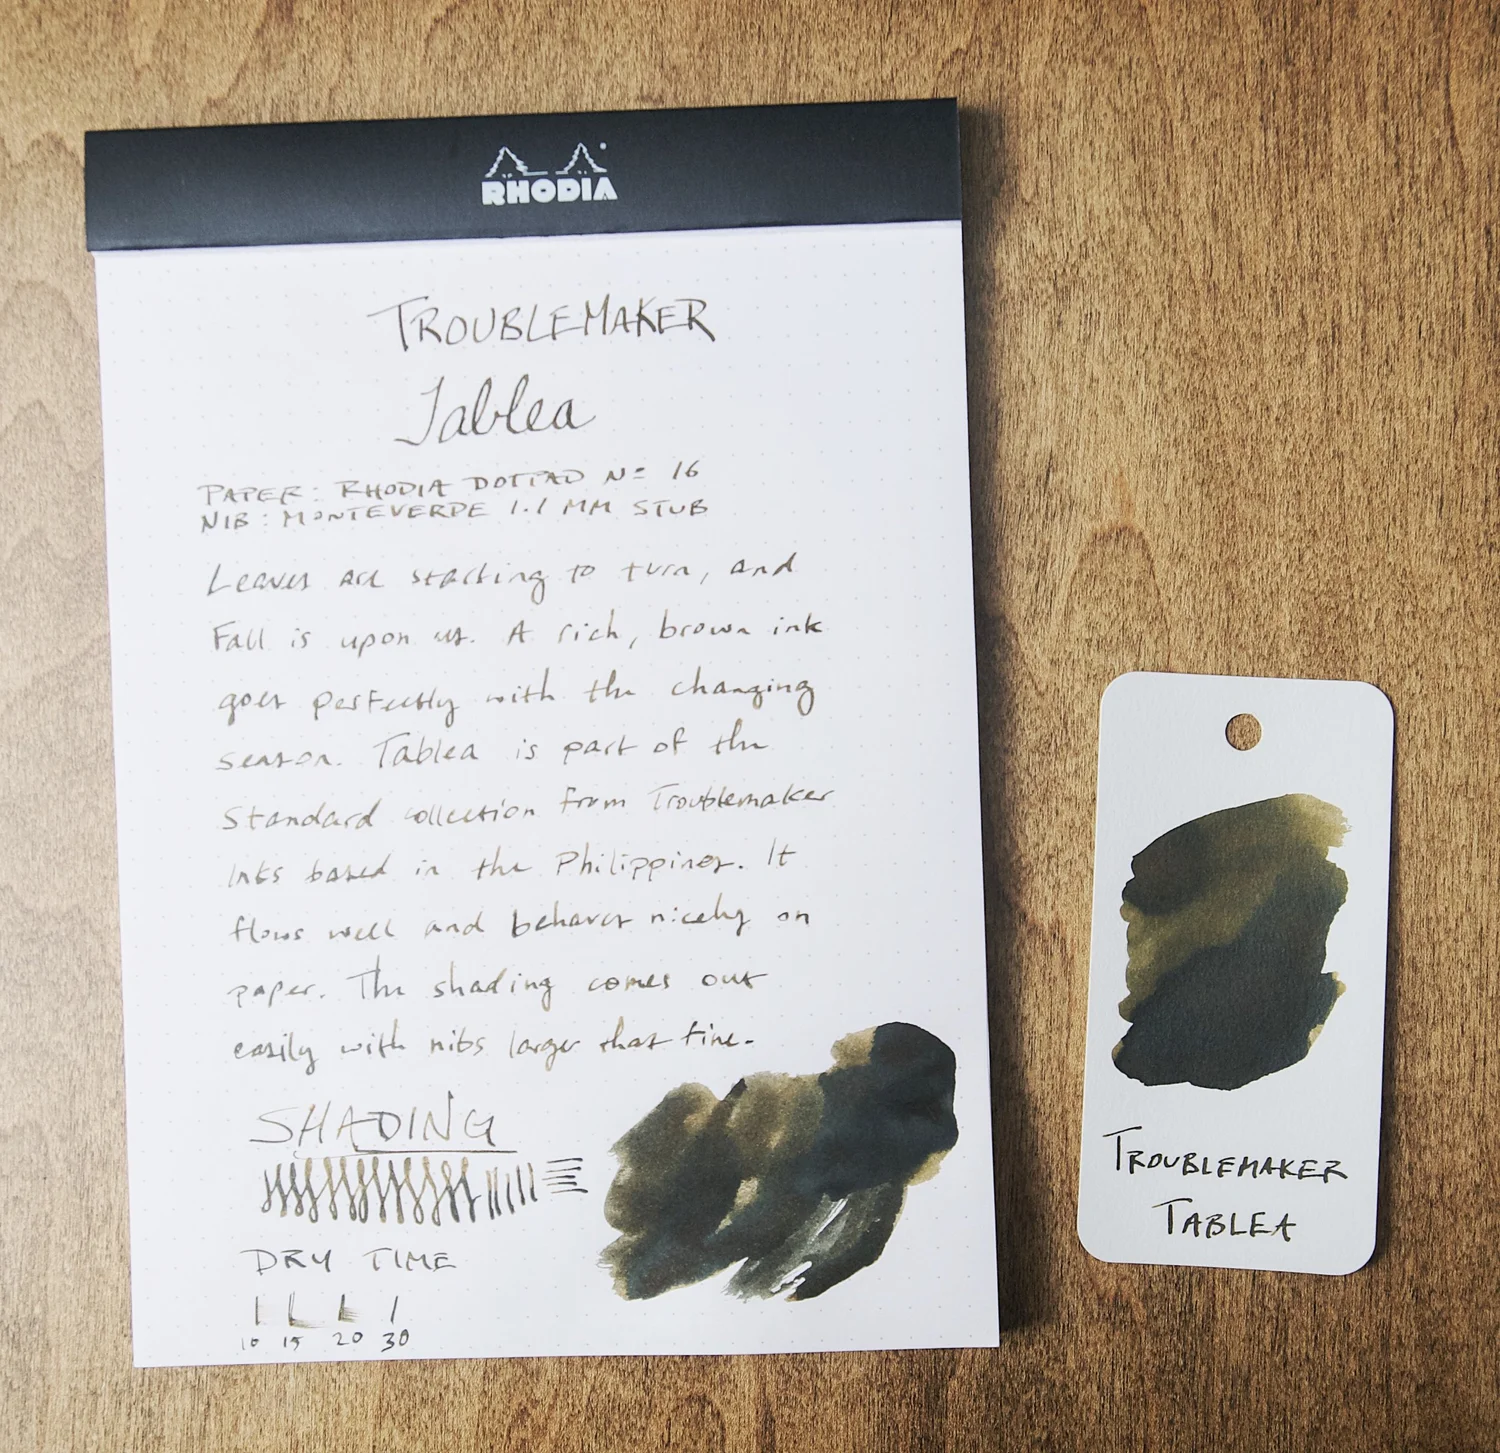 RHODIA
TROUBLEMAKER
Tablea
PAPER: RHODIA DOTPAD Nº 16
NIB: MONTEVERDE 1.1 MM STUB
Leaves are starting to turn, and
Fall is upon us. A rich, brown ink
goes perfectly with the changing
season. Tablea is part of the
Standard collection from Troublemaker
Inks based in the Philippines. It
flows well and behaves nicely on
paper. The shading comes out
easily with nibs larger that fine.
SHADING
DRY TIME
10 15 20 30
TROUBLEMAKER
TABLEA